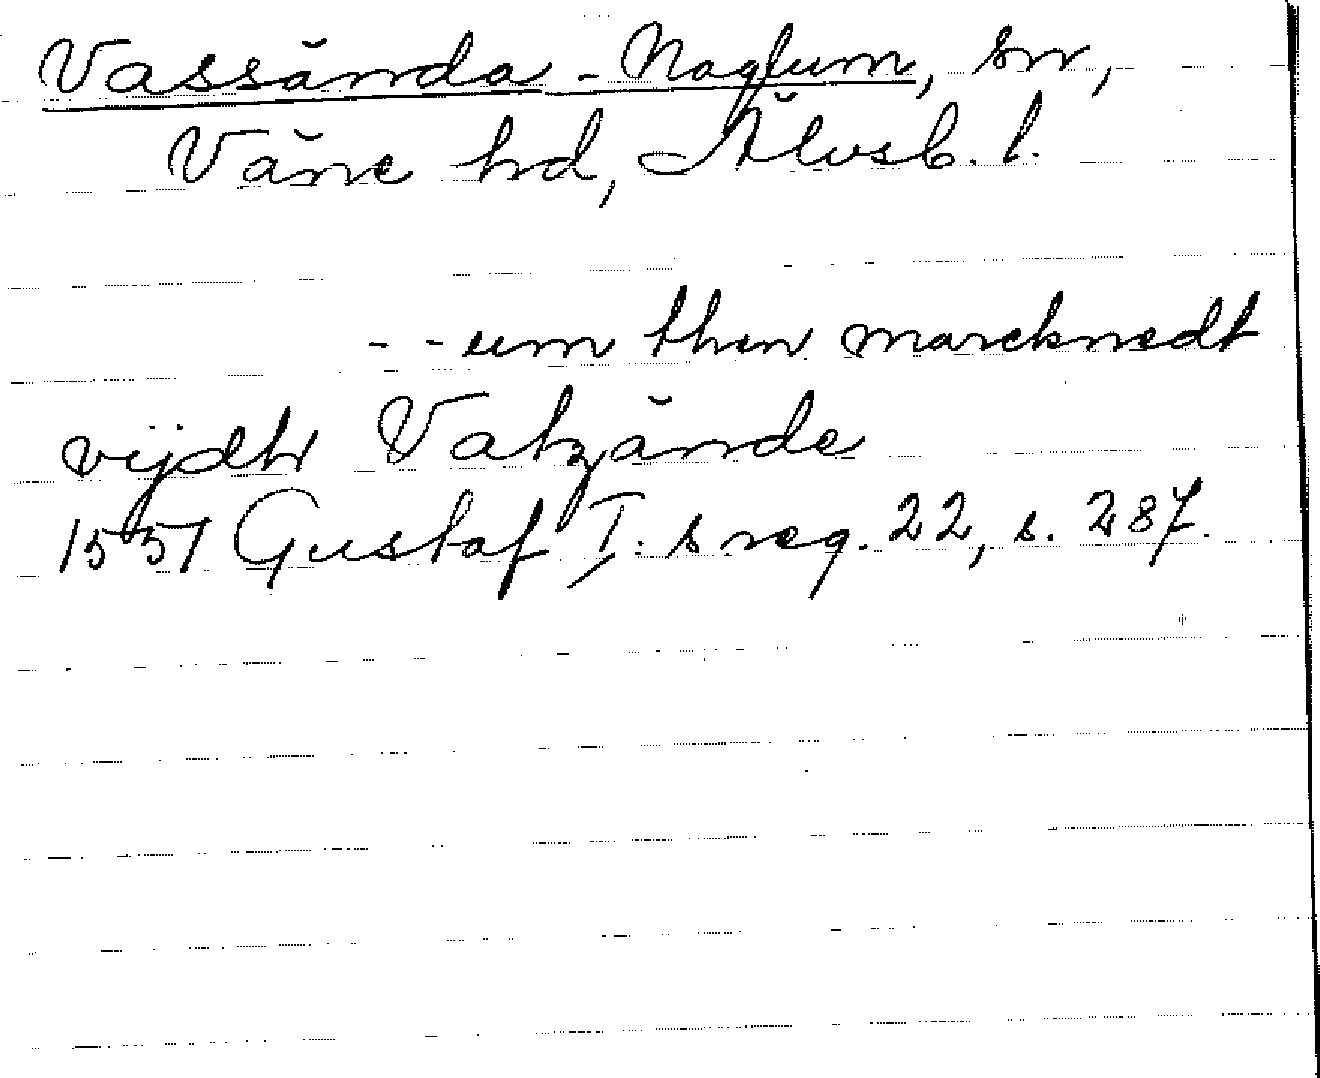 Vassända-Naglum, sn,
Väne hd, Älvsb. l.
- - um then marcknedt
vijdtr Vatzände
1551 Gustaf I:s reg. 22, s. 287.